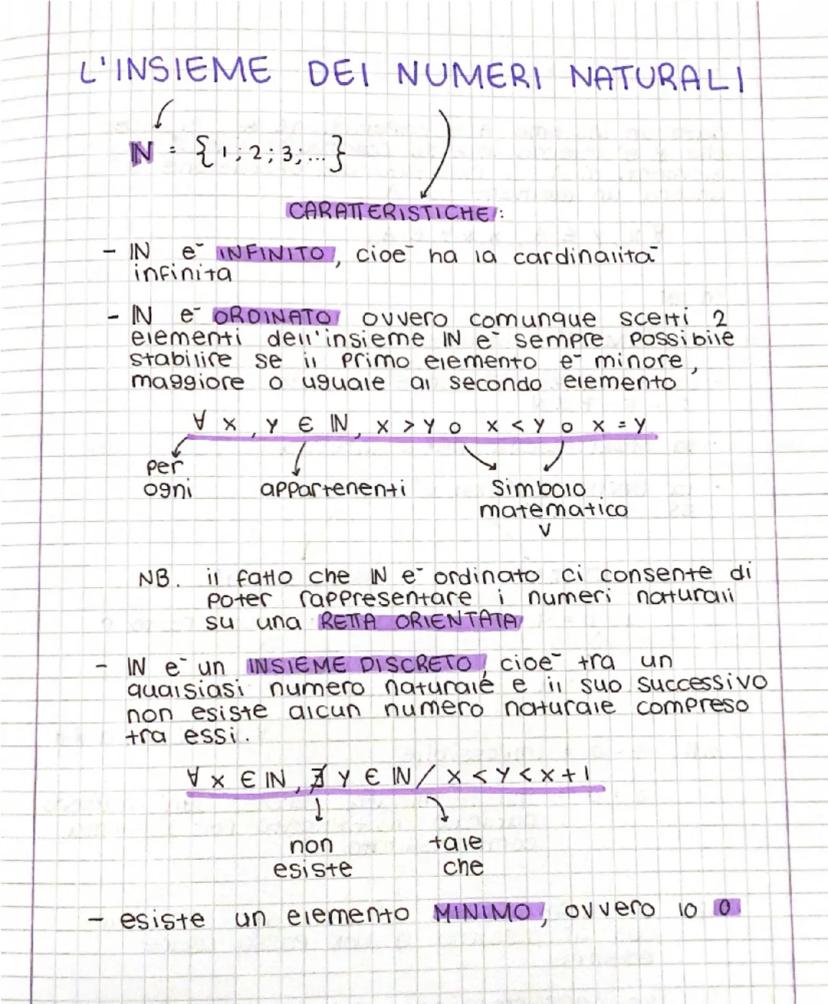 L'INSIEME DEI NUMERI NATURALI
ℕ = {1; 2; 3; ...}
CARATTERISTICHE:
- ℕ è INFINITO, cioè ha la cardinalità
infinita
- ℕ è ORDINATO ovvero comunque scelti 2
elementi dell'insieme ℕ è sempre possibile
stabilire se il primo elemento è minore,
maggiore o uguale al secondo elemento
∀ x, y ∈ ℕ, x > y o x < y o x = y
per
ogni
appartenenti
simbolo
matematico
∨
NB. il fatto che ℕ è ordinato ci consente di
poter rappresentare i numeri naturali
su una RETTA ORIENTATA
- ℕ è un INSIEME DISCRETO, cioè tra un
qualsiasi numero naturale e il suo successivo
non esiste alcun numero naturale compreso
tra essi.
∀ x ∈ ℕ, ∄ y ∈ ℕ / x < y < x + 1
non
esiste
tale
che
- esiste un elemento MINIMO, ovvero lo 0